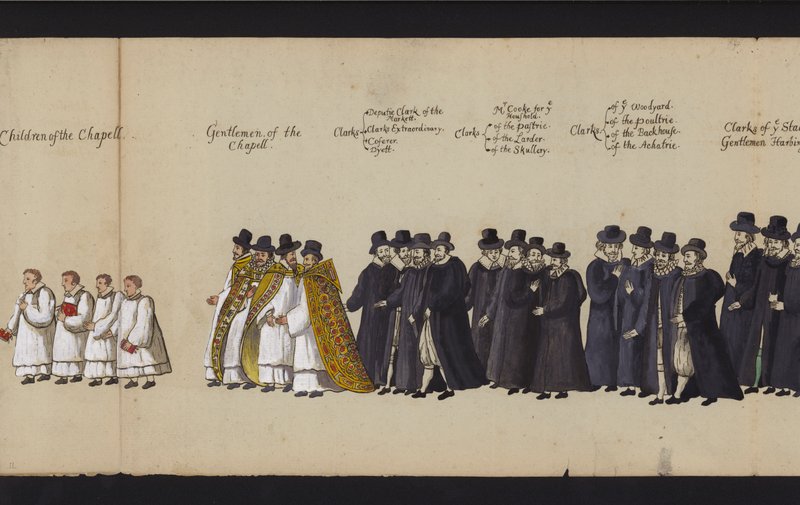 Children of the Chapell.
Gentlemen of the
Chapell.
Clarks
Deputie Clark of the
Markett.
Clarks Extraordinary.
Coferer.
Dyett.
Clarks
Mr Cooke for ye
Houshold.
of the pastrie.
of the Larder.
of the Skullery.
Clarks
of ye Woodyard.
of the poultrie.
of the Backhouse.
of the Achatrie.
Clarks of ye Sta
Gentlemen Harbin
11